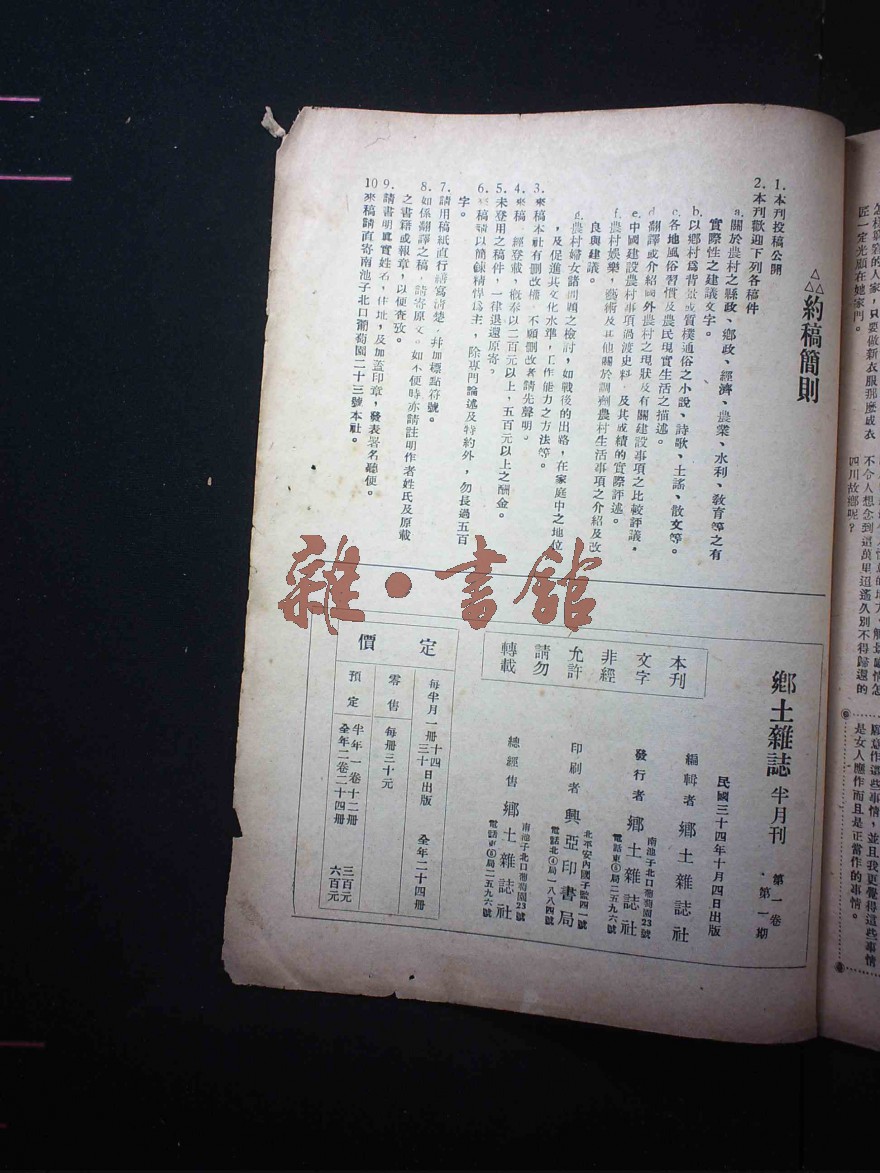 約稿簡則
1. 本刊投稿公開
2. 本刊歡迎下列各稿件
a. 關於農村之縣政、鄉政、經濟、農業、水利、敎育等之有
實際性之建議文字。
b. 以鄉村爲背景或質樸通俗之小說、詩歌、土謠、散文等。
c. 各地風俗習慣及農民現實生活之描述。
d. 翻譯或介紹國外農村之現狀及有關建設事項之比較評議。
e. 中國建設農村事項過渡史料，及其成績的實際評述。
f. 農村娛樂，藝術及其他關於調劑農村生活事項之介紹及改
良與建議。
g. 農村婦女諸問題之檢討，如戰後的出路，在家庭中之地位
，及促進其文化水準，工作能力之方法等。
3. 來稿本社有刪改權，不願刪改者請先聲明。
4. 來稿一經登載，概奉以二百元以上，五百元以上之酬金。
5. 未登用之稿件，一律退還原寄。
6. 稿請以簡鍊精悍爲主，除專門論述及特約外，勿長過五百
字。
7. 請用稿紙直行繕寫清楚，幷加標點符號。
8. 如係翻譯之稿，請寄原文。如不便時亦請註明作者姓氏及原載
之書籍或報章，以便查攷。
9. 請書明眞實姓名，住址，及加蓋印章，發表署名聽便。
10 來稿請直寄南池子北口葡萄園二十三號本社。
雜·書館
鄉土雜誌 半月刊 第一卷 第一期
民國三十四年十月四日出版
編輯者 鄉土雜誌社
發行者 鄉土雜誌社
南池子北口葡萄園23號
電話東⑤局二五九六號
印刷者 興亞印書局
北平安內國子監四一號
電話北④局一八八四號
總經售 鄉土雜誌社
南池子北口葡萄園23號
電話東⑤局二五九六號
本刊
文字
非經
允許
請勿
轉載
定價
每半月一冊十四三十日出版 全年二十四冊
零售 每冊三十元
預定 半年一卷十二冊 三百元
全年二卷二十四冊 六百元
怎樣窮的人家，只要做新衣服那麽成衣
匠一定光顧在她家門。
不令人想念到這萬里迢遙久別不得歸還的
四川故鄉呢？
願意作這些事情，並且我更覺得這些事情
是女人應作而且是正當作的事情。